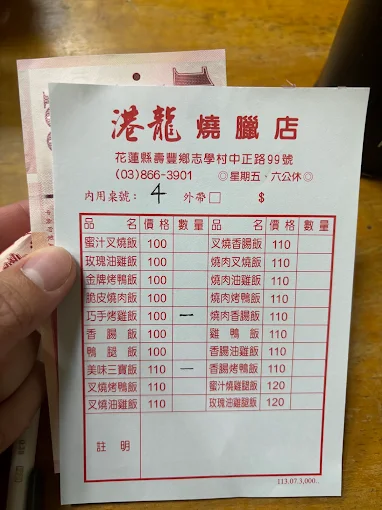 港龍 燒臘店
花蓮縣壽豐鄉志學村中正路99號
(03)866-3901 ◎星期五、六公休◎
內用桌號: 4 外帶□ $
品名 價格 數量 品名 價格 數量
蜜汁叉燒飯 100 叉燒香腸飯 110
玫瑰油雞飯 100 燒肉叉燒飯 110
金牌烤鴨飯 100 燒肉油雞飯 110
脆皮燒肉飯 100 燒肉烤鴨飯 110
巧手烤雞飯 100 一 燒肉香腸飯 110
香腸飯 100 雞鴨飯 110
鴨腿飯 100 香腸油雞飯 110
美味三寶飯 110 一 香腸烤鴨飯 110
叉燒烤鴨飯 110 蜜汁燒雞腿飯 120
叉燒油雞飯 110 玫瑰油雞腿飯 120
註明
113.07.3,000.